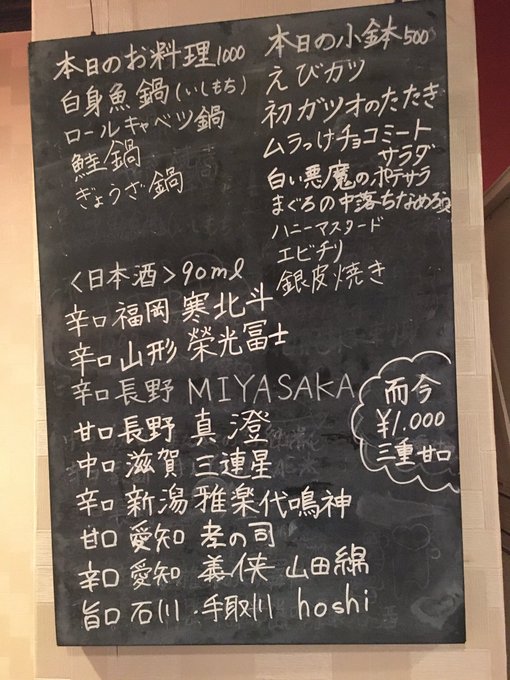 本日のお料理1000
白身魚鍋(いしもち)
ロールキャベツ鍋
鮭鍋
ぎょうざ鍋
本日の小鉢500
えびカツ
初ガツオのたたき
ムラっけチョコミート
サラダ
白い悪魔のポテサラ
まぐろの中落ちなめろう
ハニーマスタード
エビチリ
銀皮焼き
〈日本酒〉90ml
辛口 福岡 寒北斗
辛口 山形 榮光冨士
辛口 長野 MIYASAKA
甘口 長野 真澄
中口 滋賀 三連星
辛口 新潟 雅楽代鳴神
甘口 愛知 孝の司
辛口 愛知 義侠 山田綿
旨口 石川・手取川 hoshi
而今
¥1.000
三重甘口